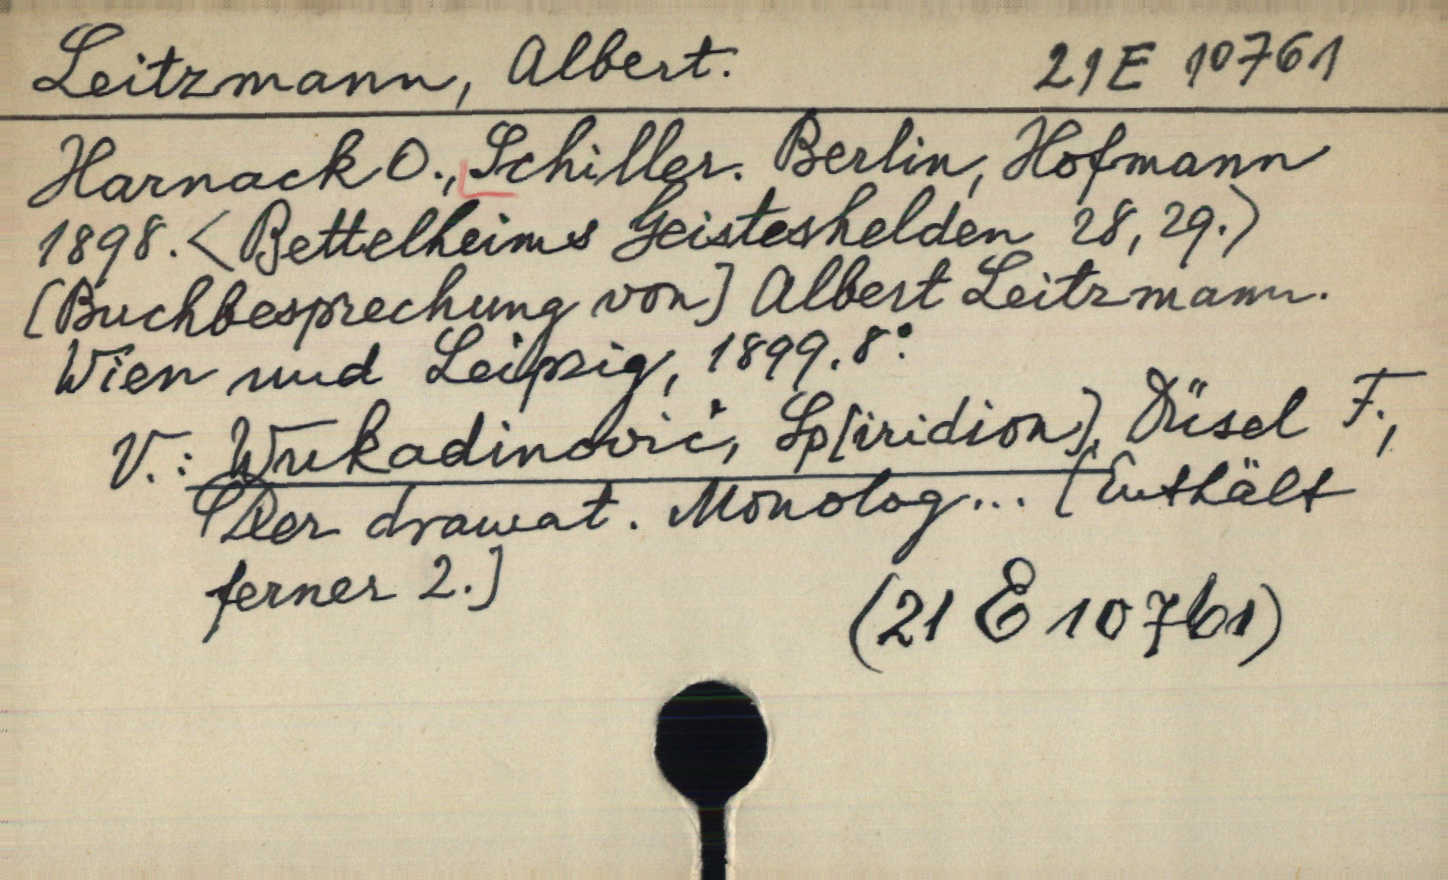 Leitzmann, Albert. 21 E 10761
Harnack O., Schiller. Berlin, Hofmann
1898. <Bettelheims Geisteshelden 28, 29.>
[Buchbesprechung von] Albert Leitzmann.
Wien und Leipzig, 1899. 8°.
V.: Wukadinović, Sp[iridion], Düsel F.,
Der dramat. Monolog... [Enthält
ferner 2.]
(21 E 10761)